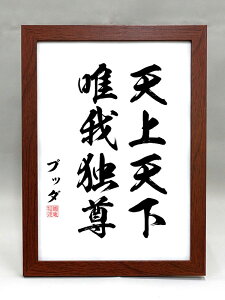 天上天下
唯我独尊
ブッダ